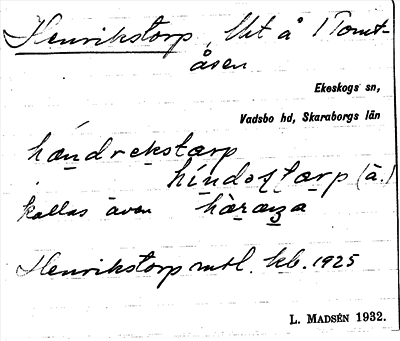 Henrikstorp, lht å 1 Tomt-
åsen
Ekeskogs sn,
Vadsbo hd, Skaraborgs län
hændrekstærp
hindostærp (ä.)
kallas även hàræza
Henrikstorp mtl. kb. 1925
L. MADSÉN 1932.